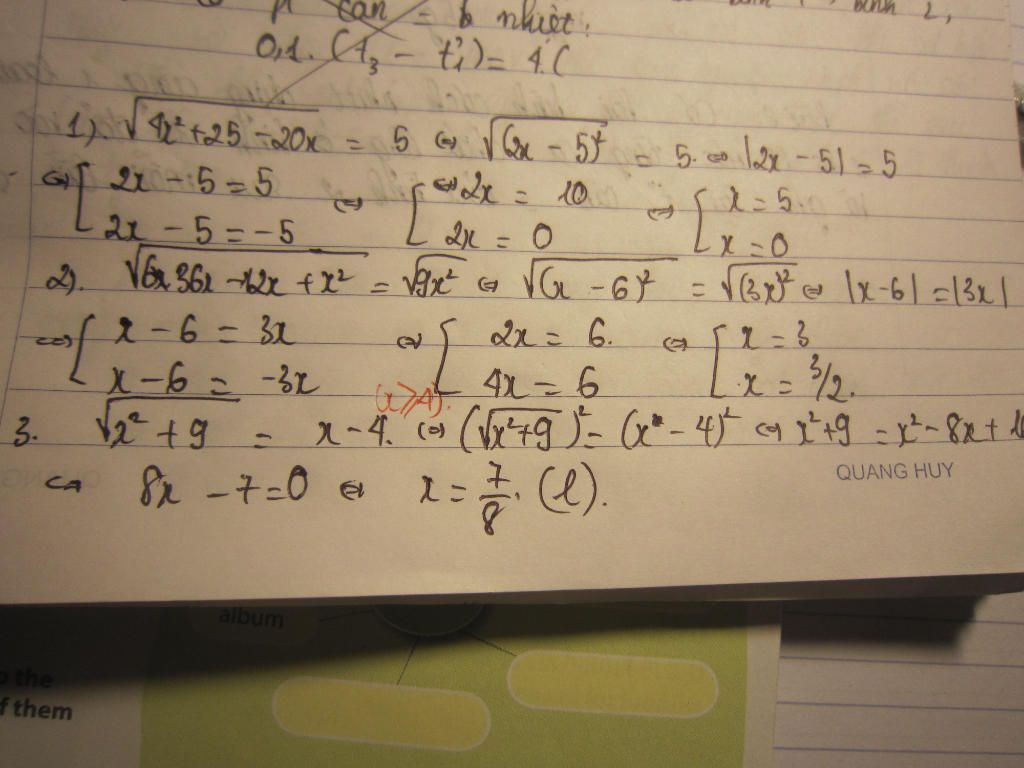 pt cân = b nhiệt:
0,1. (t₃ – t'₁) = 4.(
1). √(4x² + 25 – 20x) = 5 ⇔ √(2x – 5)² = 5. ⇔ |2x – 5| = 5
⇔ [ 2x – 5 = 5 ⇔ [ ⇔ 2x = 10 ⇔ [ x = 5.
2x – 5 = –5 2x = 0 x = 0
2). √(6x 36x – 12x + x²) = √9x² ⇔ √(x – 6)² = √(3x)² ⇔ |x – 6| = |3x|
⇔ [ x – 6 = 3x ⇔ [ 2x = 6. ⇔ [ x = 3
x – 6 = –3x 4x = 6 x = 3/2.
(x ≥ 4).
3. √(x² + 9) = x – 4. ⇔ (√(x² + 9))² = (x – 4)² ⇔ x² + 9 = x² – 8x + 16
⇔ 8x – 7 = 0 ⇔ x = 7/8. (l).
QUANG HUY
album
the
f them